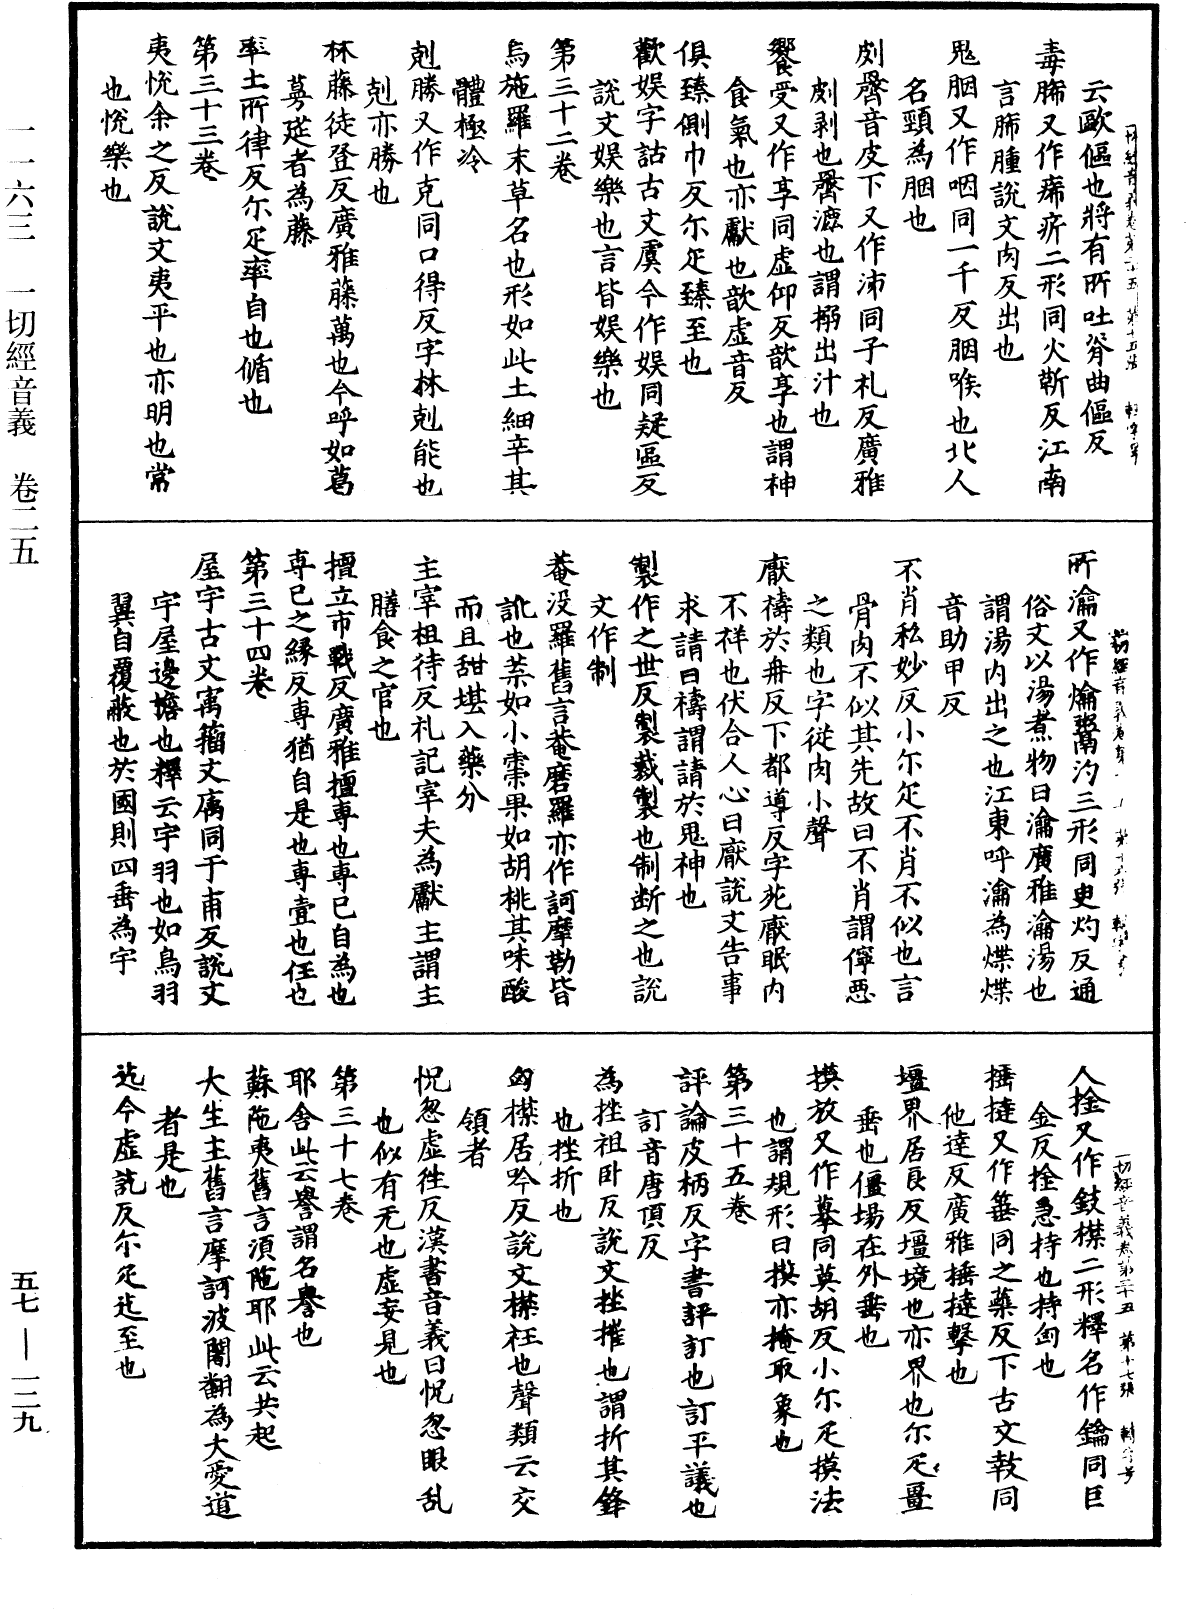 一一六三 一切經音義 卷二五
云歐傴也將有所吐脊曲傴反
毒腨又作痛痏二形同火靳反江南
言腨腫說文肉反出也
鬼胭又作咽同一千反胭喉也北人
名頸為胭也
皰𪗋音皮下又作沛同子礼反廣雅
皰剥也𪗋漉也謂搦出汁也
饗受又作享同虛仰反歆享也謂神
食氣也亦獻也歆虛音反
俱臻側巾反尒疋臻至也
歡娱字詁古文虞今作娱同疑區反
說文娱樂也言皆娱樂也
第三十二卷
烏施羅末草名也形如此土細辛其
體極冷
剋勝又作克同口得反字林剋能也
剋亦勝也
林藤徒登反廣雅藤藟也今呼如葛
蔓莚者為藤
率土所律反尒疋率自也循也
第三十三卷
夷悅余之反說文夷平也亦明也常
也悅樂也
所瀹又作爚鬻汋三形同臾灼反通
俗文以湯煮物曰瀹廣雅瀹湯也
謂湯內出之也江東呼瀹為煠煠
音助甲反
不肖私妙反小尒疋不肖不似也言
骨肉不似其先故曰不肖謂儜惡
之類也字從肉小聲
厭禱於冉反下都導反字苑厭眠內
不祥也伏合人心曰厭說文告事
求請曰禱謂請於鬼神也
製作之世反製裁製也制断之也說
文作制
菴没羅舊言菴磨羅亦作訶摩勒皆
訛也菓如小棗果如胡桃其味酸
而且甜堪入藥分
主宰祖待反礼記宰夫為獻主謂主
膳食之官也
擅立市戰反廣雅擅專也專己自為也
專己之緣反專猶自是也專壹也任也
第三十四卷
屋宇古文㝢籀文庽同于甫反說文
宇屋邊檐也釋云宇羽也如鳥羽
翼自覆蔽也於國則四垂為宇
人捦又作㩒襟二形釋名作鑰同巨
金反捦急持也持匈也
捶撻又作箠同之蘂反下古文㪜同
他達反廣雅捶撻擊也
壃界居良反壃境也亦界也尒疋畺
垂也僵場在外垂也
摸放又作摹同莫胡反小尒疋摸法
也謂規形曰摸亦掩取象也
第三十五卷
評論皮柄反字書評訂也訂平議也
訂音唐頂反
為挫祖卧反說文挫摧也謂折其鋒
也挫折也
匈襟居吟反說文襟衽也聲類云交
領者
怳忽虛往反漢書音義曰怳忽眼乱
也似有无也虛妄見也
第三十七卷
耶舍此云譽謂名譽也
蘇陁夷舊言須陁耶此云共起
大生主舊言摩訶波闍翻為大愛道
者是也
迄今虛訖反尒疋迄至也
五七—一二九